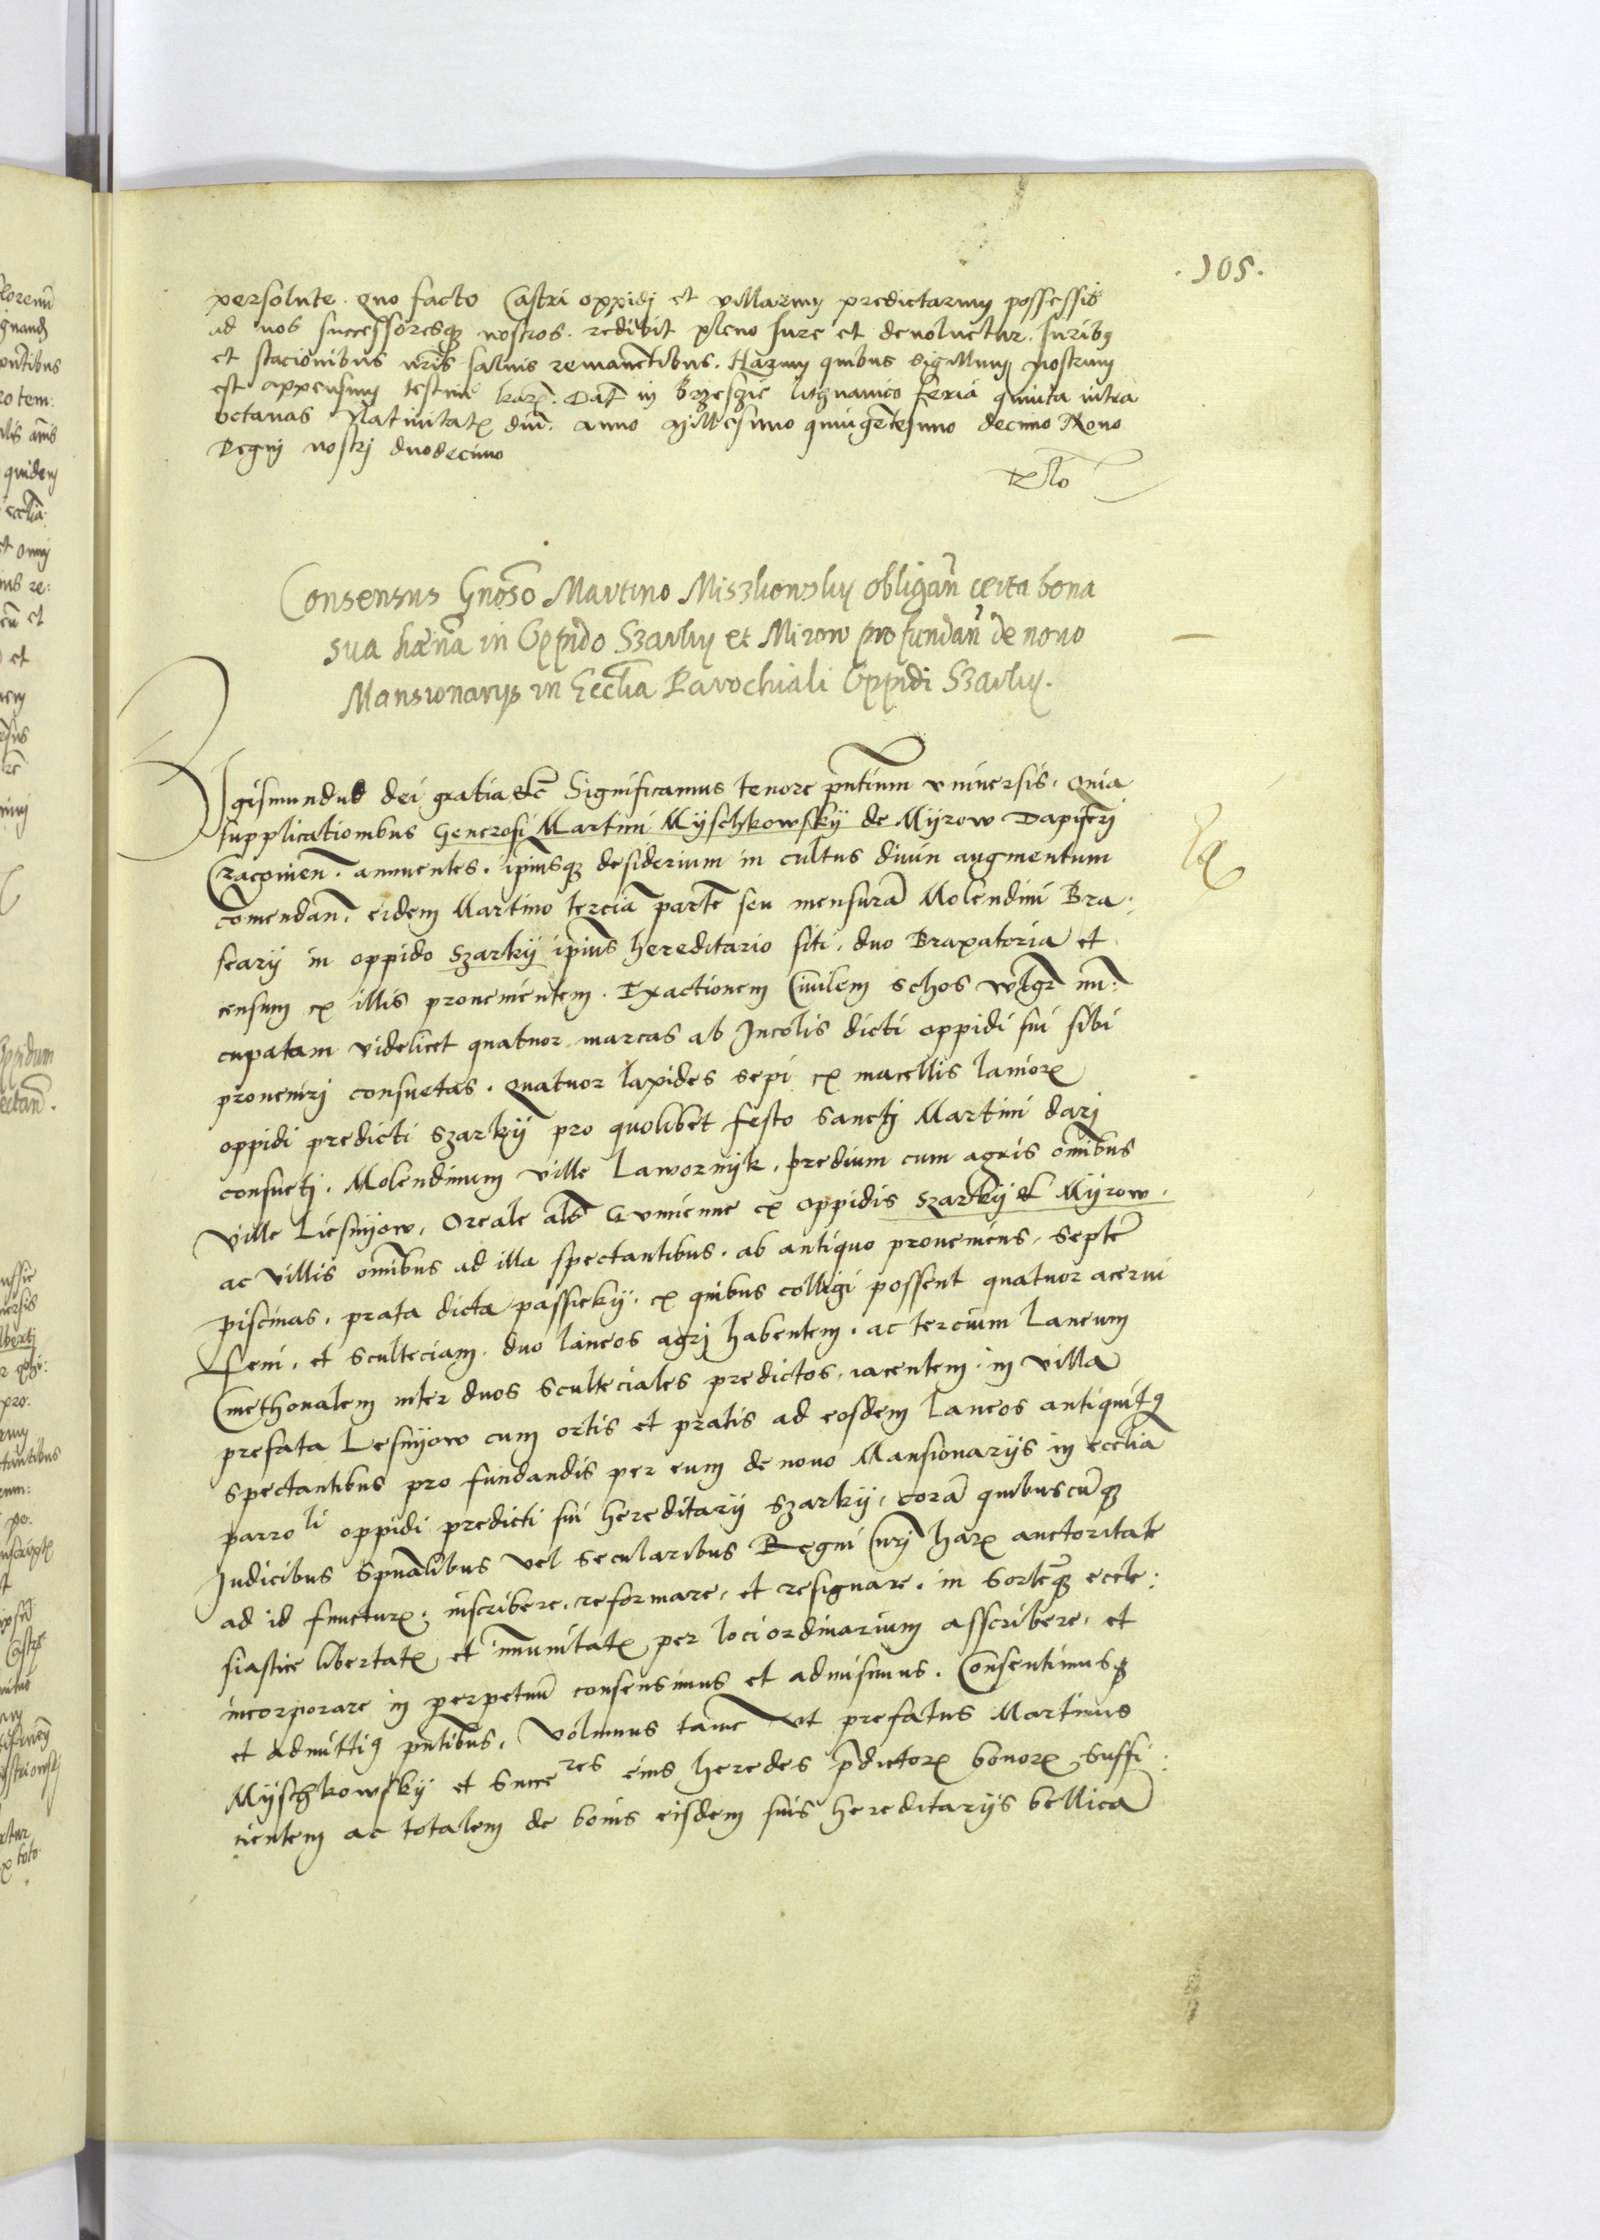 .105.
persolute. quo facto Castri oppidj et villarum predictarum possessio
ad nos successoresq; nostros. redibit pleno Iure et devoluetur. Iuribq
et stacionibus nr̃is saluis remanētibus. Harum quibus sigillum nostrum
est appensum testīm harꝝ. Dat̃ in Brzeszcie lithuanico feria quinta intra
octauas Natiuitatꝭ dnī. anno Millesimo quingētesimo decimo Nono
Regnj nostrj duodecimo
Consensus Gnōso Martino Miszkowsky obligan̄ certa bona
sua hæn̄a in Oppido Szarky et Mirow pro fundan̄ de nouo
Mansionarijs in Eccl̃ia Parochiali Oppidi Szarky.
Sigismundus dei gratia etc̃ Significamus tenore pñtium vniuersis. Quia
supplicationibus Generosi Martini Myschkowsky de Myrow Dapiferj
Cracouien̄. annuentes. ip̄iusq; desiderium in cultus diuin̄ augmentum
comendan̄. eidem Martino terciā partē seu mensurā Molendini Bra:
seary in oppido Szarky ip̄ius hereditario siti, duo Braxatoria et
censum ex illis prouenientem. Exactionem Ciuilem schos wlgr̃ nun̄:
cupatam videlicet quatuor marcas ab Incolis dicti oppidi sui sibi
prouenirj consuetas. Quatuor lapides sepi ex macellis lanioꝝ
oppidi predicti Szarky pro quolibet festo Sanctj Martini darj
consuetj. Molendinum ville Lawornyk, predium cum agris om̄ibus
ville Liesnyow, Oreale al̃s Gumienne ex oppidis Szarky et Myrow.
ac villis om̄ibus ad illa spectantibus. ab antiquo proueniens. septē
piscinas. prata dicta passieky. ex quibus colligi possent quatuor acerui
feni. et sculteciam. duo laneos agrj habentem. ac tercium Laneum
Cmethonalem inter duos scultetiales predictos. iacentem. in villa
prefata Lesnyow cum ortis et pratis ad eosdem laneos antiquitq
spectantibus pro fundandis per eum de nouo Mansionarijs in eccl̃ia
parroli oppidi predicti sui hereditarij Szarky, corā quibuscūq;
Iudicibus Spũalibus vel secularibus Regni nr̃j harꝝ auctoritate
ad id functurꝭ. inscribere. reformare. et resignare. in sortēq; eccle:
siastice libertatꝭ et immunitatꝭ per loci ordinarium asscribere. et
incorporare in perpetuū consensimus et admisimus. Consentimusq
et admittiq pñtibus. Volumus tamē vt prefatus Martinus
Myschkowsky et Succeres eius heredes p̄dictoꝝ bonoꝝ suffi:
cientem ac totalem de bonis eisdem suis hereditarijs bellicā